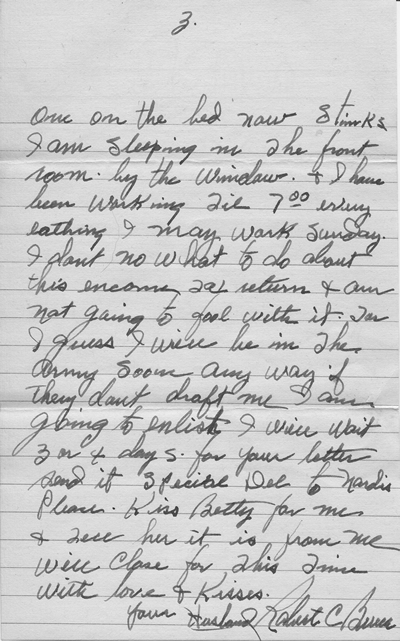 3.
one on the bed now stinks
I am sleeping in the front
room. by the window. & I have
been working til 7 00 every
I may work Sunday.
I dont no what to do about
this encome tax return & am
not going to fool with it. for
I guess I will be in the
army soon any way if
they dont draft me I am
going to enlist I will wait
3 or 4 days. for your letter
send it Special Del to Nardis
Please. Kiss Betty for me
& tell her it is from me
will close for this time
with love & Kisses.
your Husband Robert C.